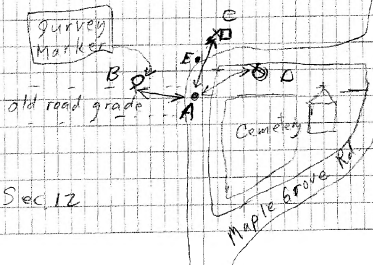 Survey
Marker
C
E
B
D
A
old road grade
Cemetery
Sec. 12
Maple Grove Rd